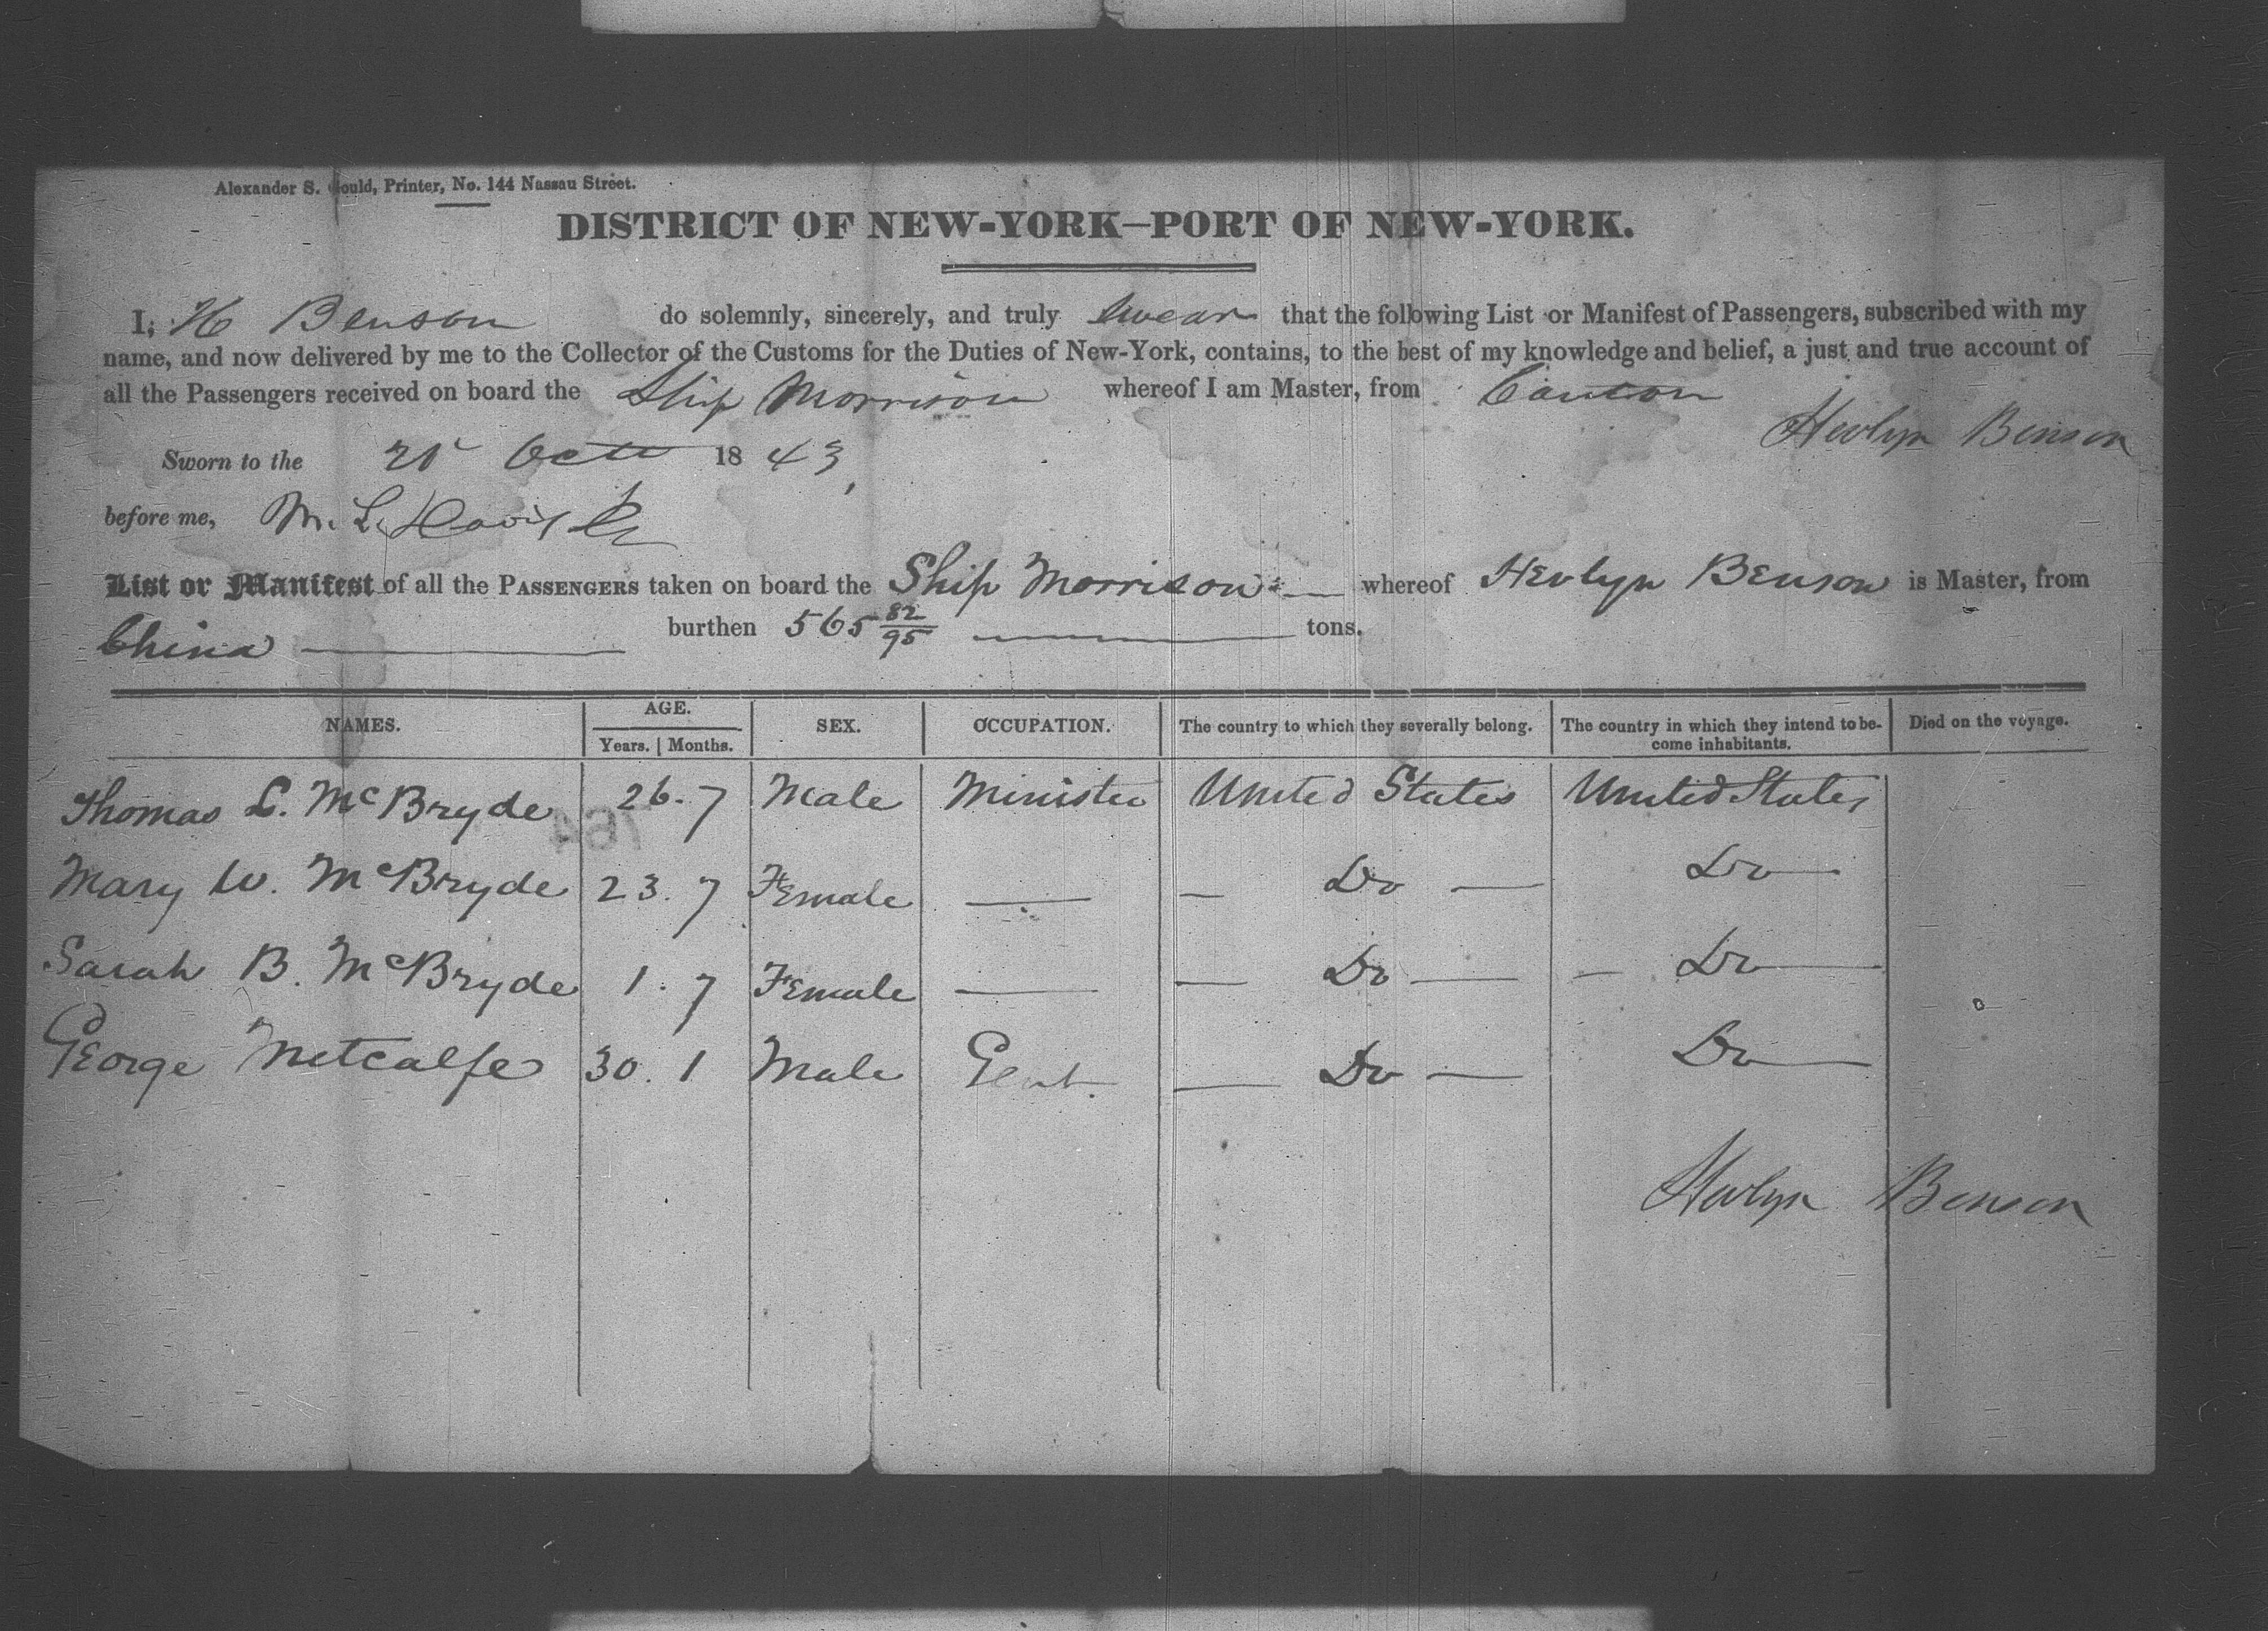 Alexander S. Gould, Printer, No. 144 Nassau Street.
DISTRICT OF NEW-YORK—PORT OF NEW-YORK.
I, H Benson do solemnly, sincerely, and truly swear that the following List or Manifest of Passengers, subscribed with my
name, and now delivered by me to the Collector of the Customs for the Duties of New-York, contains, to the best of my knowledge and belief, a just and true account of
all the Passengers received on board the Ship Morrison whereof I am Master, from Canton
Hevlyn Benson
Sworn to the Oct 1843
before me, M. L. Davis
List or Manifest of all the PASSENGERS taken on board the Ship Morrison whereof Hevlyn Benson is Master, from
China burthen 565 82/95 tons.
NAMES. AGE. Years. Months. SEX. OCCUPATION. The country to which they severally belong. The country in which they intend to become inhabitants. Died on the voyage.
Thomas L. McBryde 26. 7 Male Minister United States United States
Mary W. McBryde 23. 7 Female — — Do — Do —
Sarah B. McBryde 1. 7 Female — — Do — — Do —
George Metcalfe 30. 1 Male Gent. — Do — Do —
764
Hevlyn Benson